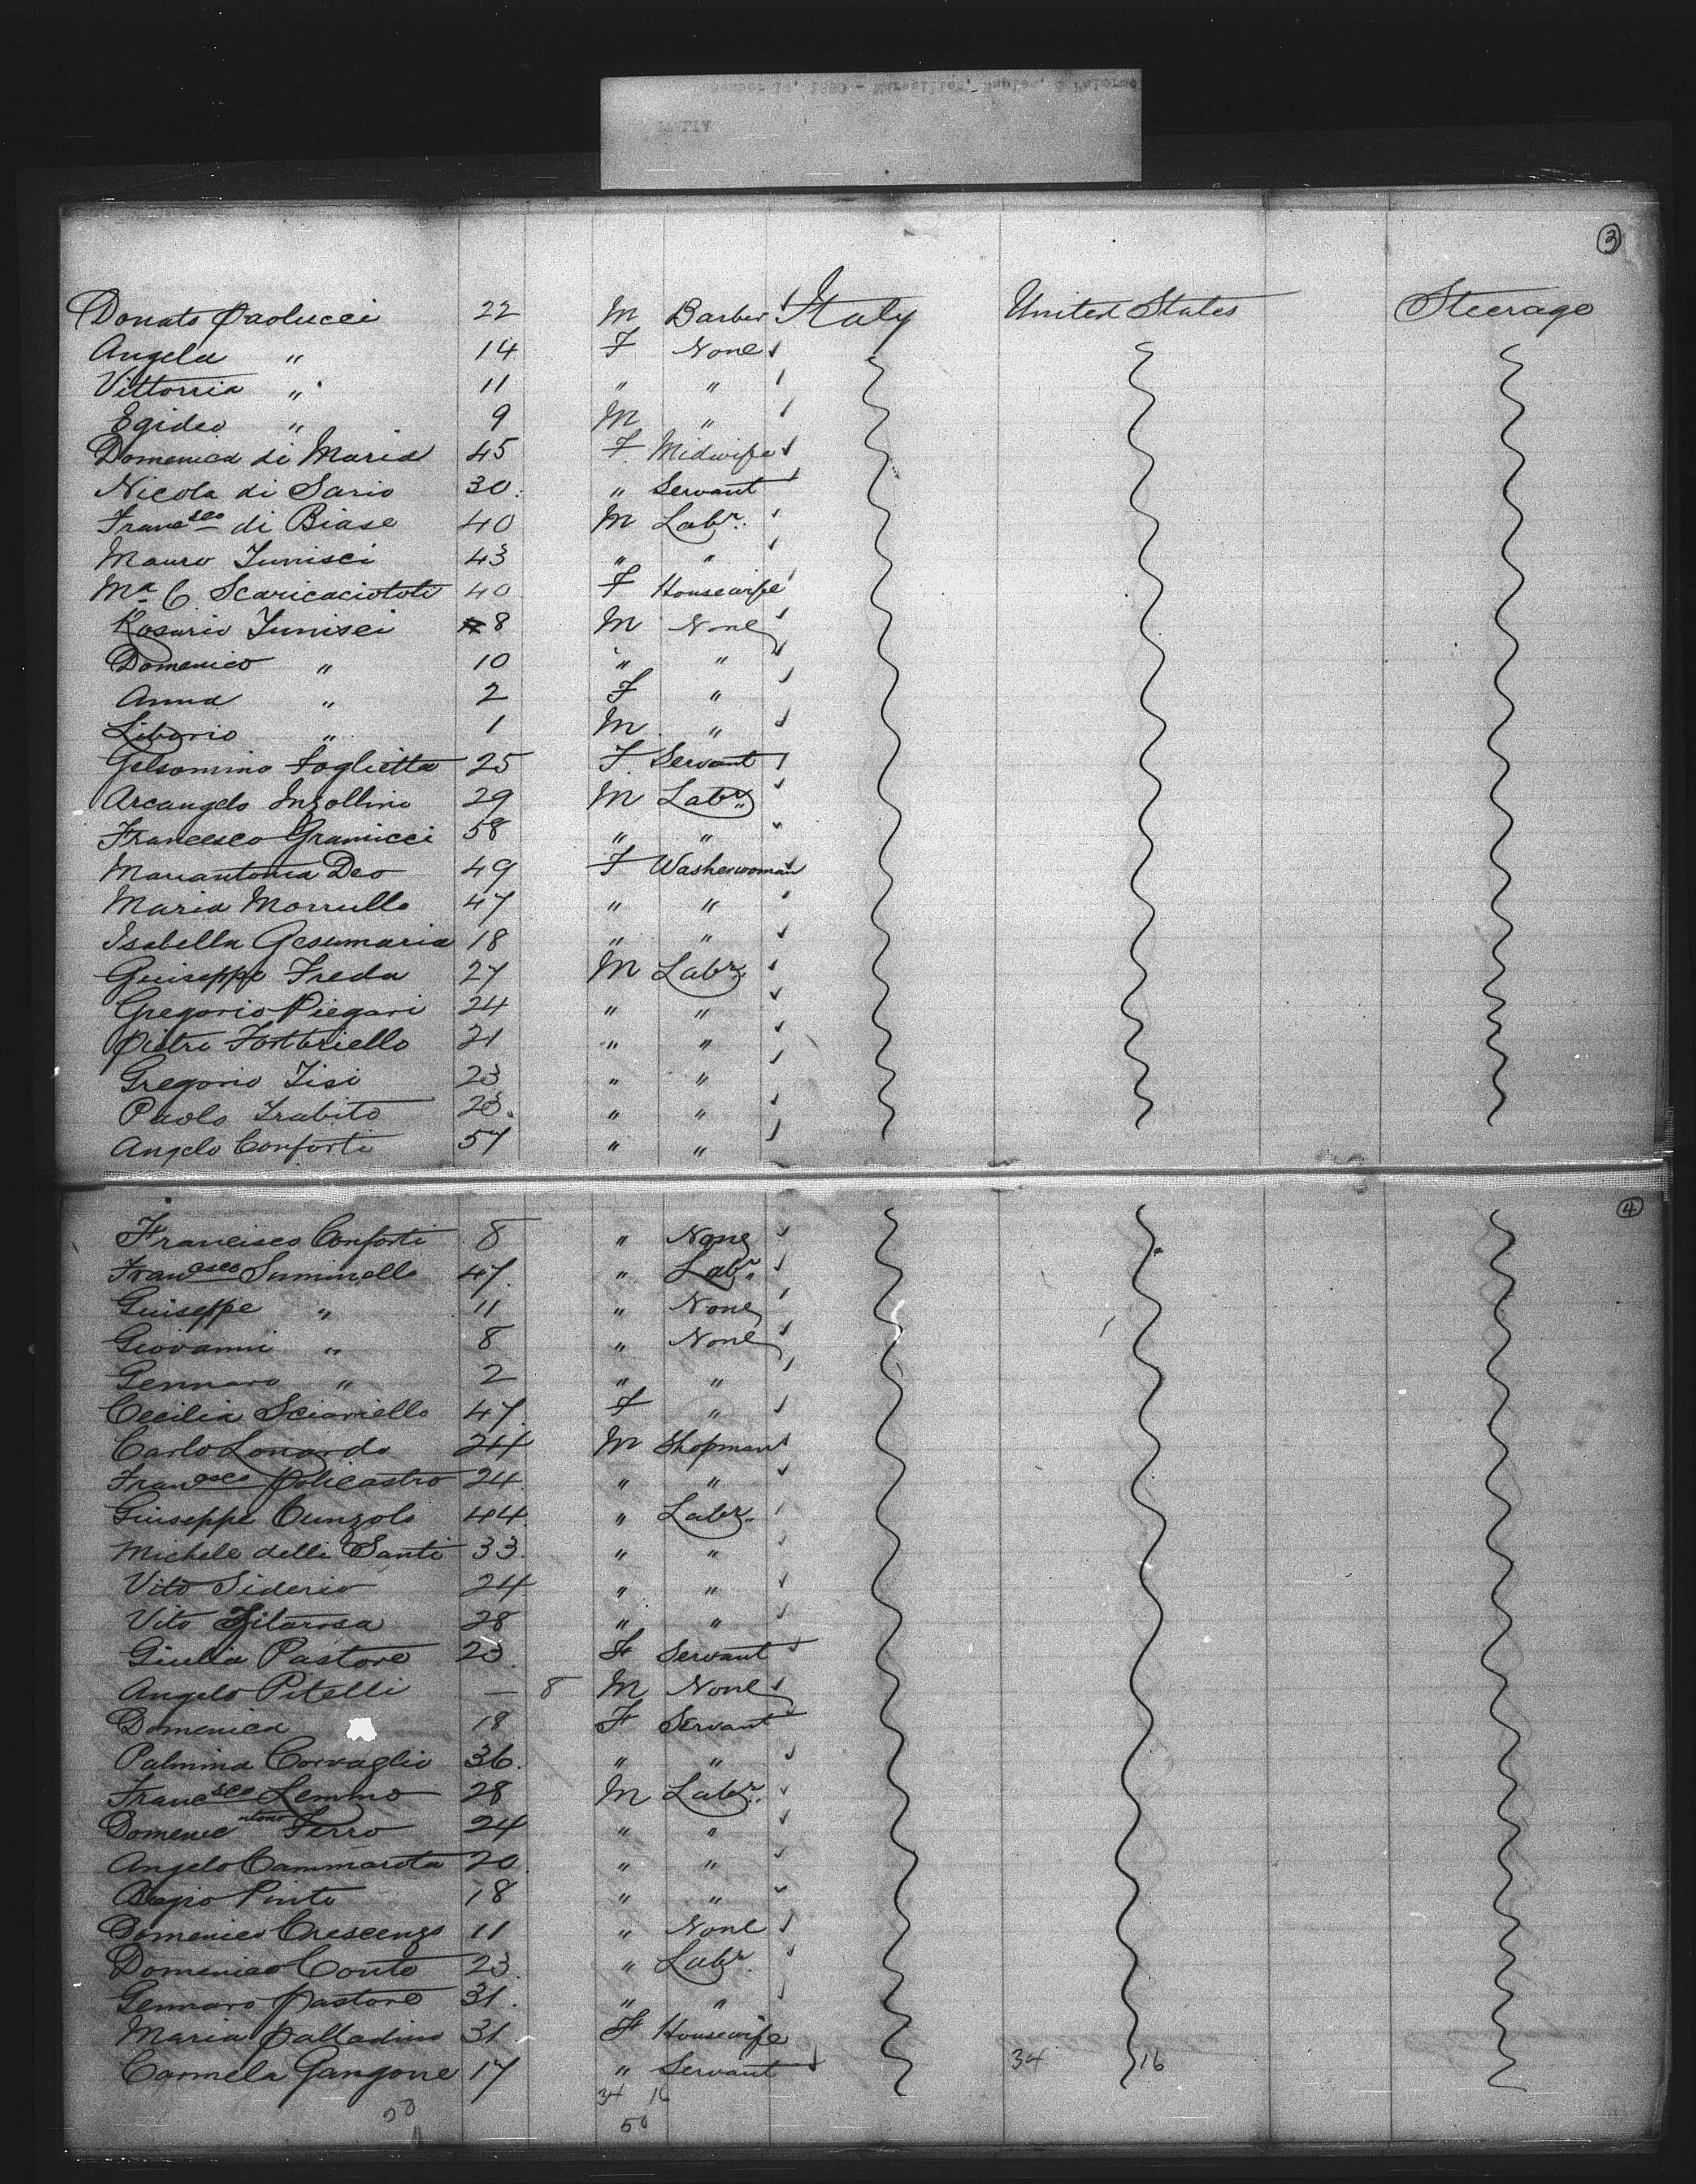 3
Donato Paolucci 22 M Barber Italy United States Steerage
Angela " 14 F None
Vittorria " 11 " "
Egideo " 9 M "
Domenica di Maria 45 F Midwife
Nicola di Sario 30 " Servant
Francsco di Biase 40 M Labr.
Mauro Iunisci 43 " "
Ma C Scaricaciotoli 40 F Housewife
Rosario Iunisci 8 M None
Domenico " 10 " "
Anna " 2 F "
Liborio " 1 M "
Gelsomina Foglietta 25 F Servant
Arcangelo Inzollino 29 M Labr
Francesco Gramicci 58 " "
Mariantonia Deo 49 F Washerwoman
Maria Morrullo 47 " "
Isabella Gesumaria 18 " "
Guiseppe Freda 27 M Labr
Gregorio Piegari 24 " "
Pietri 21 " "
Gregorio Tisi 23 " "
Paolo Trabito 23 " "
Angelo Conforti 57 " "
4
Francisco Conforti 8 " None
Francsco Suminello 47 " Labr
Guiseppe " 11 " None
Giovanni " 8 " None
Gennaro " 2 " "
Cecilia Sciariello 47 F "
Carlo Lonardo 24 M Shopman
Francsco Policastro 24 " "
Giuseppe Cunzolo 44 " Labr.
Michele delli Santi 33 " "
Vito Siderio 24 " "
Vito 28 " "
Giulia Pastore 23 F Servant
Angelo Pitelli — 8 M None
Domenica 18 F Servant
Palmina Corvaglio 36 " "
Francsco Lemmo 28 M Labr.
Domenicntono Ferro 24 " "
Angelo Cammarota 20 " "
Biagio Pinto 18 " "
Domenico Crescenzo 11 " None
Domenico Conte 23 " Labr.
Gennaro Pastore 31 " "
Maria Palladino 31 F Housewife
Carmela Gangone 17 " Servant 34 16
34 16
50 50